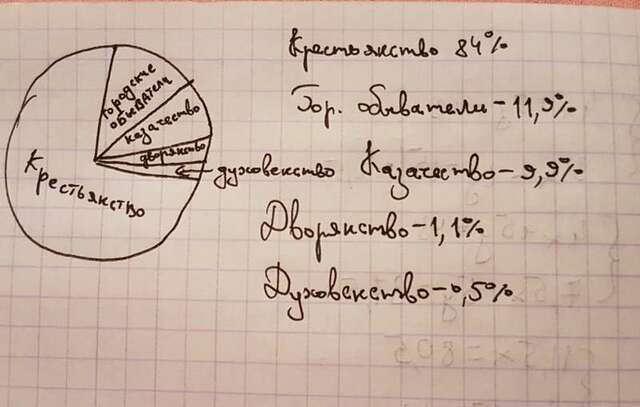 городские
обыватели
казачество
дворянство
духовенство
Крестьянство
Крестьянство 84%
Гор. обыватели - 11,9%
Казачество - 9,9%
Дворянство - 1,1%
Духовенство - 0,5%